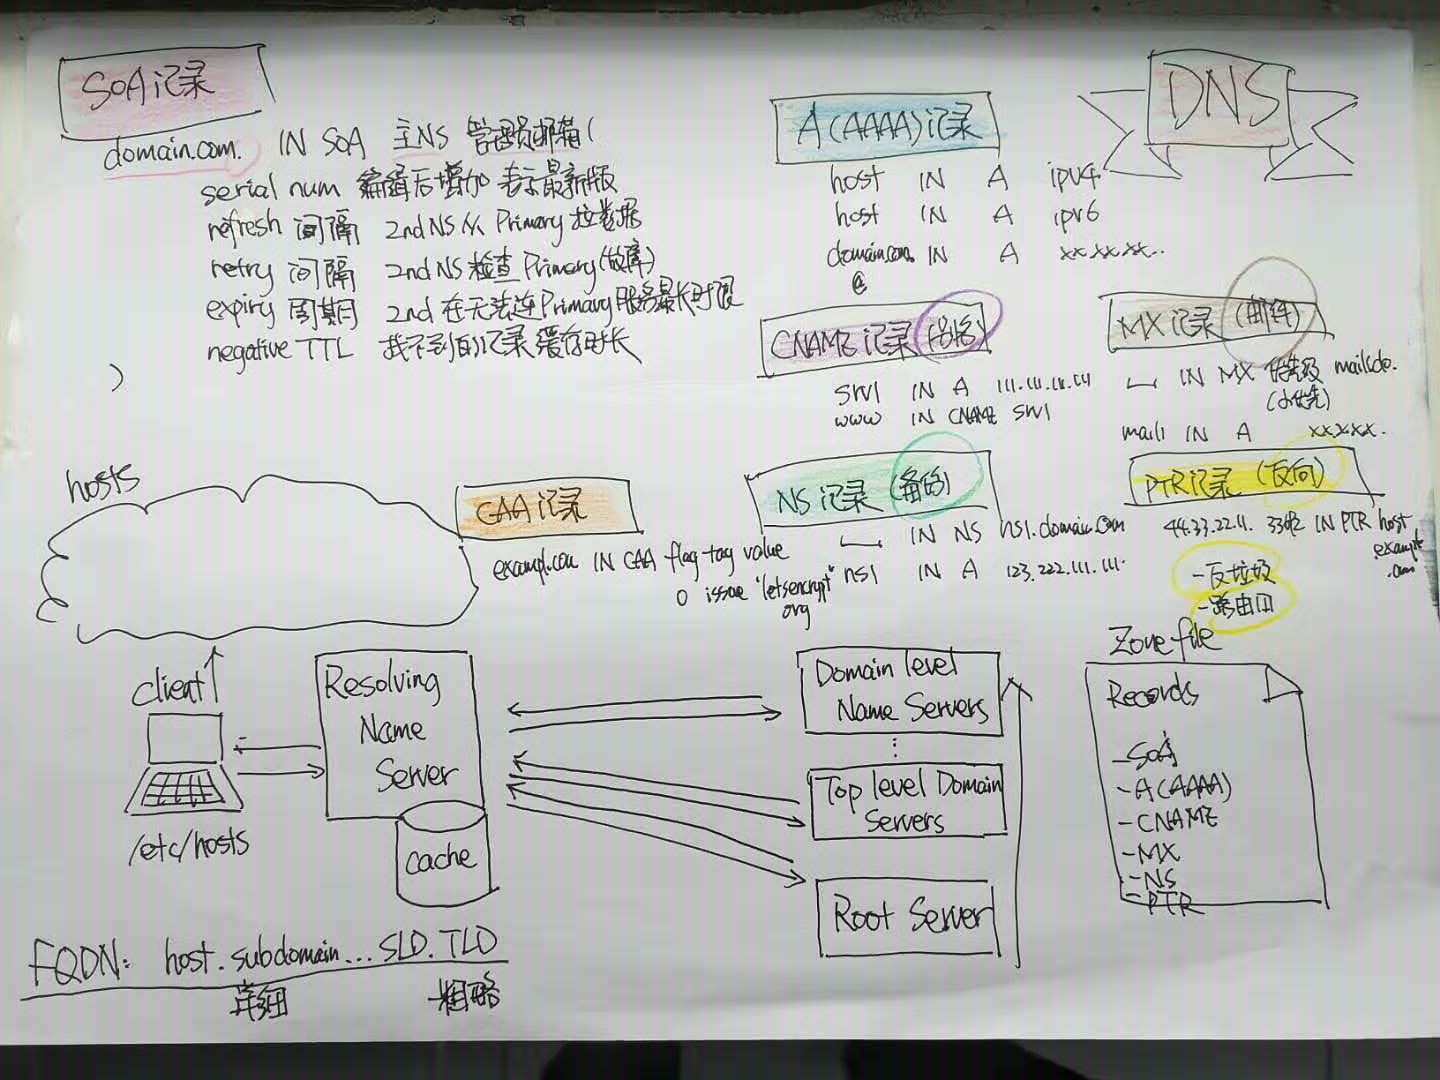 DNS
SOA记录
domain.com. IN SOA 主NS 管理员邮箱(
serial num 编辑后增加 表示最新版
refresh 间隔 2nd NS 从 Primary 拉数据
retry 间隔 2nd NS 检查 Primary(故障)
expiry 周期 2nd 在无法连Primary服务最长时限
negative TTL 找不到的记录缓存时长
)
A(AAAA)记录
host IN A ipv4
host IN A ipv6
domain.com. IN A xx.xx.xx..
@
CNAME记录(别名)
srv1 IN A 111.111.111.111
www IN CNAME srv1
MX记录(邮件)
IN MX 优先级 mail1.do.
(小优先)
mail1 IN A xx.x.xx.
CAA记录
exampl.com IN CAA flag tag value
0 issue "letsencrypt"
org
NS记录
IN NS ns1.domain.com
ns1 IN A 123.222.111.111
PTR记录(反向)
44.33.22.11. 33492 IN PTR host.
example
.com
-反垃圾
-路由
hosts
client
/etc/hosts
Resolving
Name
Server
cache
Domain level
Name Servers
Top level Domain
Servers
Root Server
Zone file
Records
-SOA
-A(AAAA)
-CNAME
-MX
-NS
-PTR
FQDN: host.subdomain...SLD.TLD
详细 粗略